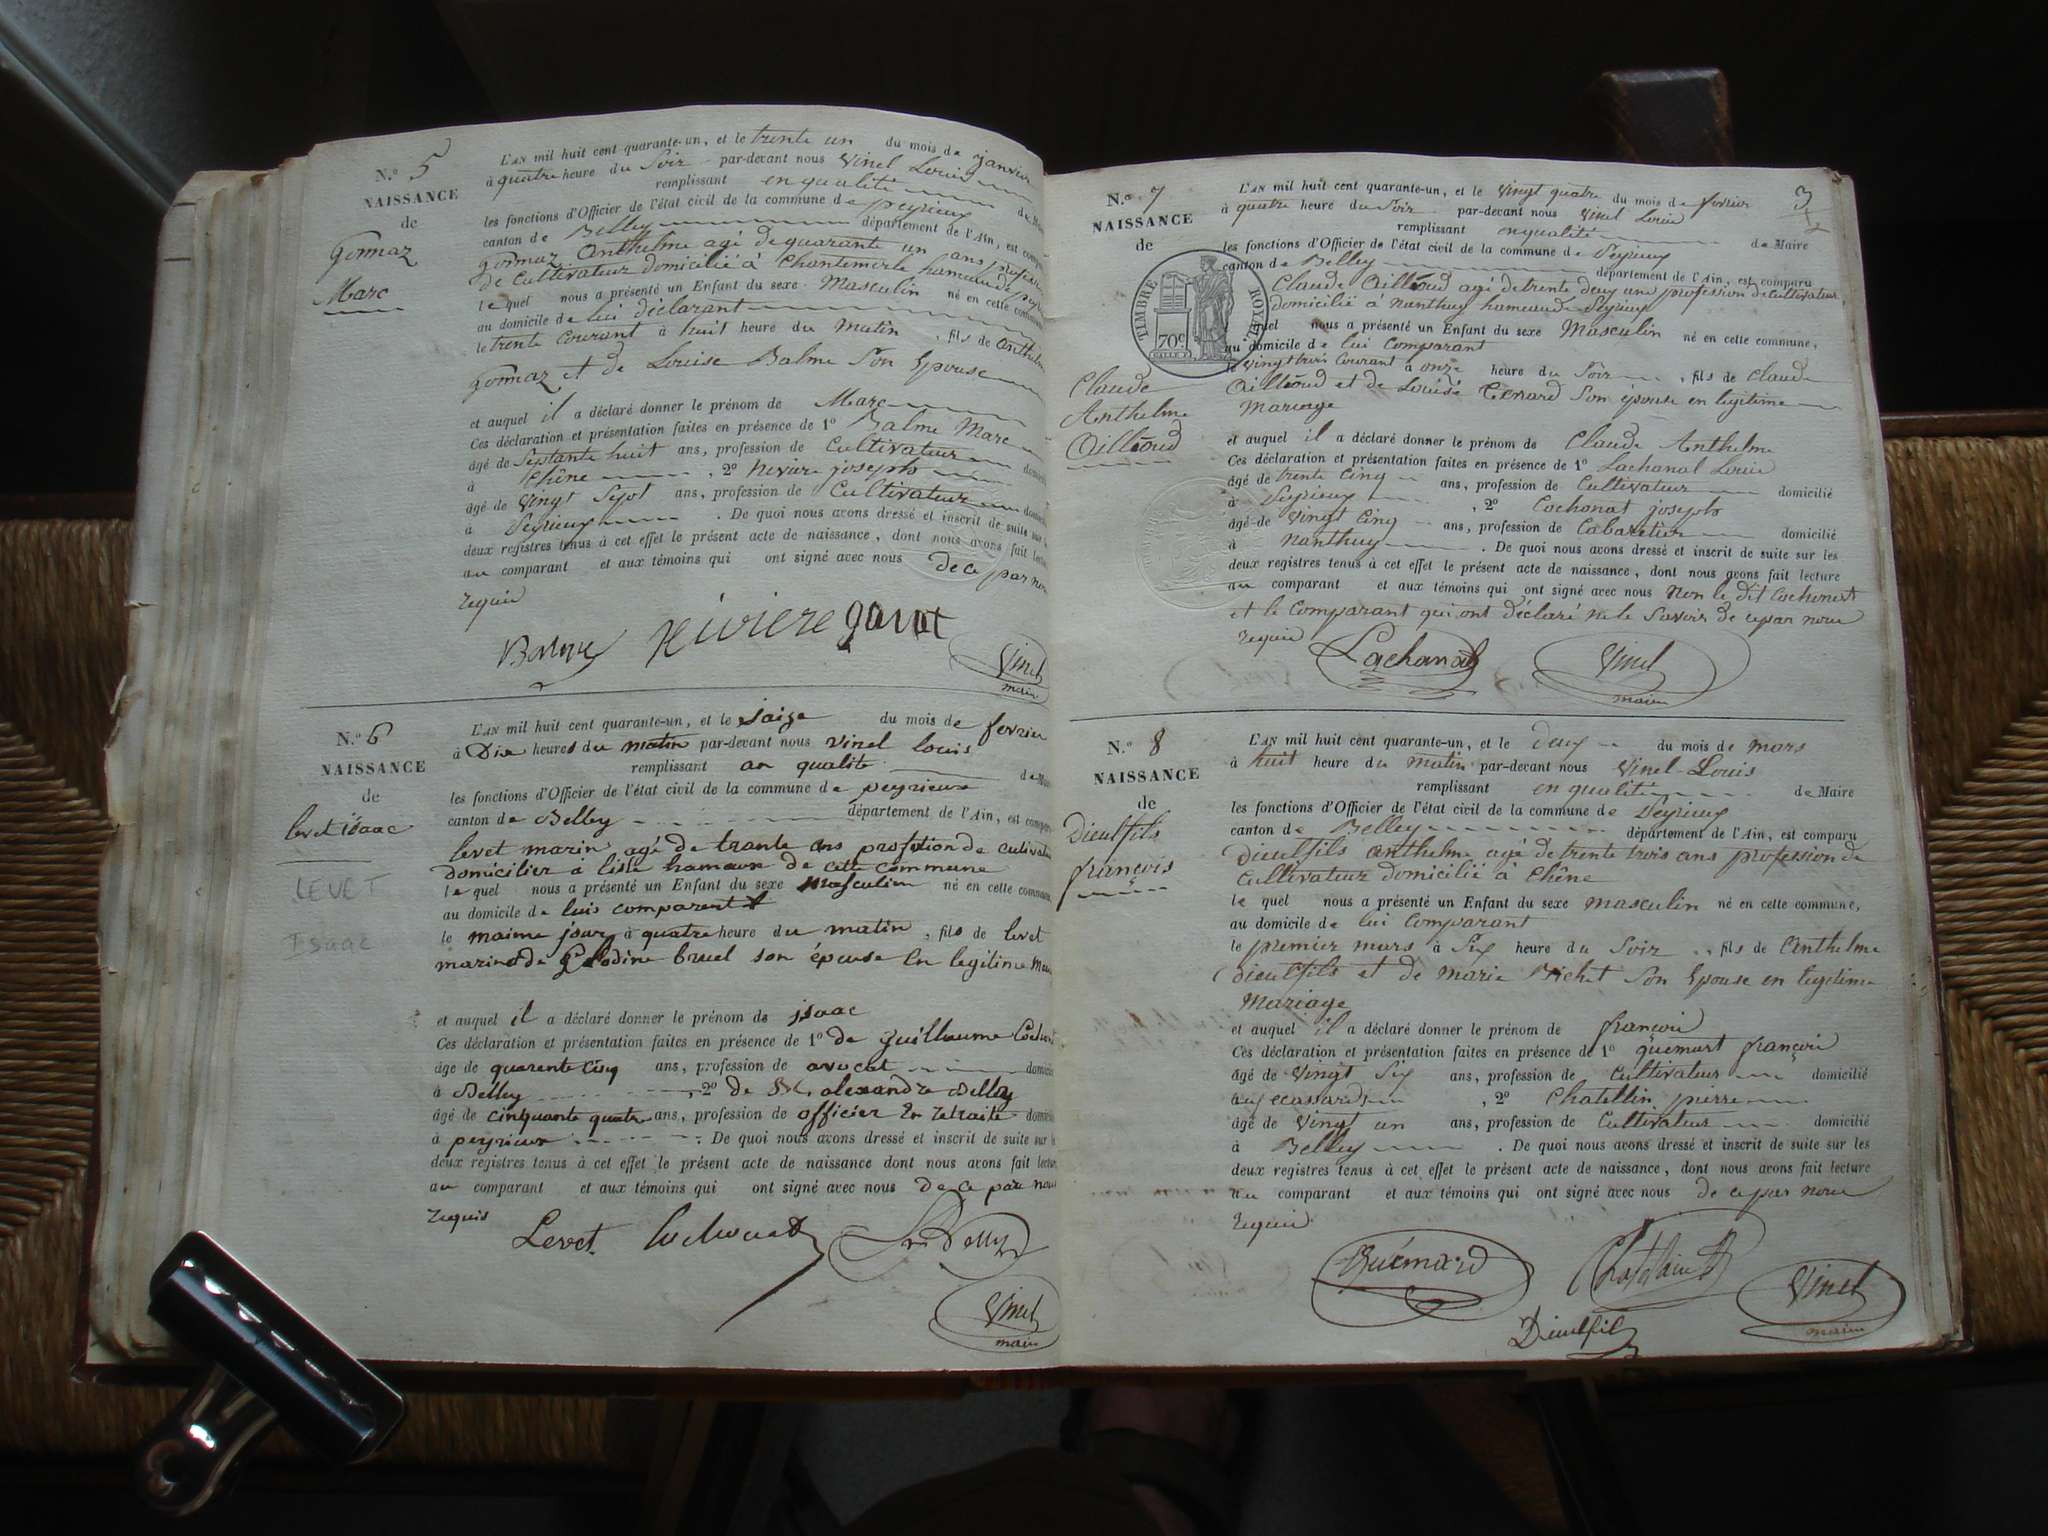 N.° 5
NAISSANCE
de
Gonnaz
Marc
L'AN mil huit cent quarante-un, et le trente un du mois de janvier
à quatre heure du Soir par-devant nous Vinel Louis
remplissant en qualité de
les fonctions d'Officier de l'état civil de la commune de peyrieux
canton de Belley département de l'Ain, est
gonnaz Anthelme agé de quarante un ans
de Cultivateur domicilié à Chantemerle hameau de
lequel nous a présenté un Enfant du sexe Masculin né en cette
au domicile de lui déclarant
le trente Courant à huit heure du Matin, fils de anthelme
gonnaz et de Louise Balme Son Epouse
et auquel il a déclaré donner le prénom de Marc
Ces déclaration et présentation faites en présence de 1° Balme Marc
âgé de Septante huit ans, profession de Cultivateur
à Chêne, 2° joseph
âgé de Vingt Sept ans, profession de Cultivateur
à Peyrieux. De quoi nous avons dressé et inscrit de suite sur
deux registres tenus à cet effet le présent acte de naissance, dont nous avons fait
au comparant et aux témoins qui ont signé avec nous de ce par nous
requis
Riviere
Vinel
maire
N.° 6
NAISSANCE
de
levet isaac
LEVET
Isaac
L'AN mil huit cent quarante-un, et le saize du mois de fevrier
à Dix heures du matin par-devant nous vinel louis
remplissant an qualite de
les fonctions d'Officier de l'état civil de la commune de peyrieux
canton de Belley département de l'Ain, est
levet marin agé de trante ans profetion de
domicilier à hamaux de cette commune
lequel nous a présenté un Enfant du sexe masculin né en cette commune
au domicile de luis comparent
le maime jour à quatre heure du matin, fils de levet
marin de bruel son épouse En legitime
et auquel il a déclaré donner le prénom de isaac
Ces déclaration et présentation faites en présence de 1° de guillaume
âge de quarente cinq ans, profession de avocat
à Belley, 2° de alexandre Belley
âgé de cinquante quatre ans, profession de officier En retraite
à peyrieux. De quoi nous avons dressé et inscrit de suite sur
deux registres tenus à cet effet le présent acte de naissance dont nous avons fait lecture
au comparant et aux témoins qui ont signé avec nous de ce par nous
requis
Levet
Vinel
maire
3
N.° 7
NAISSANCE
de
TIMBRE ROYAL
70c
Claude
Anthelme
L'AN mil huit cent quarante-un, et le Vingt quatre du mois de fevrier
à quatre heure du Soir par-devant nous Vinel Louis
remplissant en qualité de Maire
les fonctions d'Officier de l'état civil de la commune de Peyrieux
canton de Belley département de l'Ain, est comparu
Claude agé de trente deux ans profession de Cultivateur
domicilié à nanthuy hameau de Peyrieux
quel nous a présenté un Enfant du sexe Masculin né en cette commune,
au domicile de lui Comparant
le Vingt trois Courant à onze heure du Soir, fils de Claude
et de Louise Son épouse en legitime
Mariage
et auquel il a déclaré donner le prénom de Claude Anthelme
Ces déclaration et présentation faites en présence de 1° Lachanal Louis
âgé de trente Cinq ans, profession de Cultivateur domicilié
à Peyrieux, 2° Cochonat joseph
âgé de Vingt Cinq ans, profession de Cabaretier domicilié
à nanthuy. De quoi nous avons dressé et inscrit de suite sur les
deux registres tenus à cet effet le présent acte de naissance, dont nous avons fait lecture
au comparant et aux témoins qui ont signé avec nous non le dit
et le Comparant qui ont déclaré ne le Savoir de ce par nous
requis
Lachanal
Vinel
maire
N.° 8
NAISSANCE
de
Dieulfils
françois
L'AN mil huit cent quarante-un, et le deux du mois de mars
à huit heure du matin par-devant nous Vinel Louis
remplissant en qualité de Maire
les fonctions d'Officier de l'état civil de la commune de Peyrieux
canton de Belley département de l'Ain, est comparu
Dieulfils anthelme agé de trente trois ans profession de
Cultivateur domicilié à Chêne
le quel nous a présenté un Enfant du sexe masculin né en cette commune,
au domicile de lui Comparant
le premier mars à Six heure du Soir, fils de Anthelme
Dieulfils et de Marie Son Epouse en legitime
Mariage
et auquel il a déclaré donner le prénom de françois
Ces déclaration et présentation faites en présence de 1° françois
âgé de Vingt Six ans, profession de Cultivateur domicilié
2° Chatellin pierre
âgé de Vingt un ans, profession de Cultivateur domicilié
à Belley. De quoi nous avons dressé et inscrit de suite sur les
deux registres tenus à cet effet le présent acte de naissance, dont nous avons fait lecture
au comparant et aux témoins qui ont signé avec nous de ce par nous
requis
Vinel
maire
Dieulfils